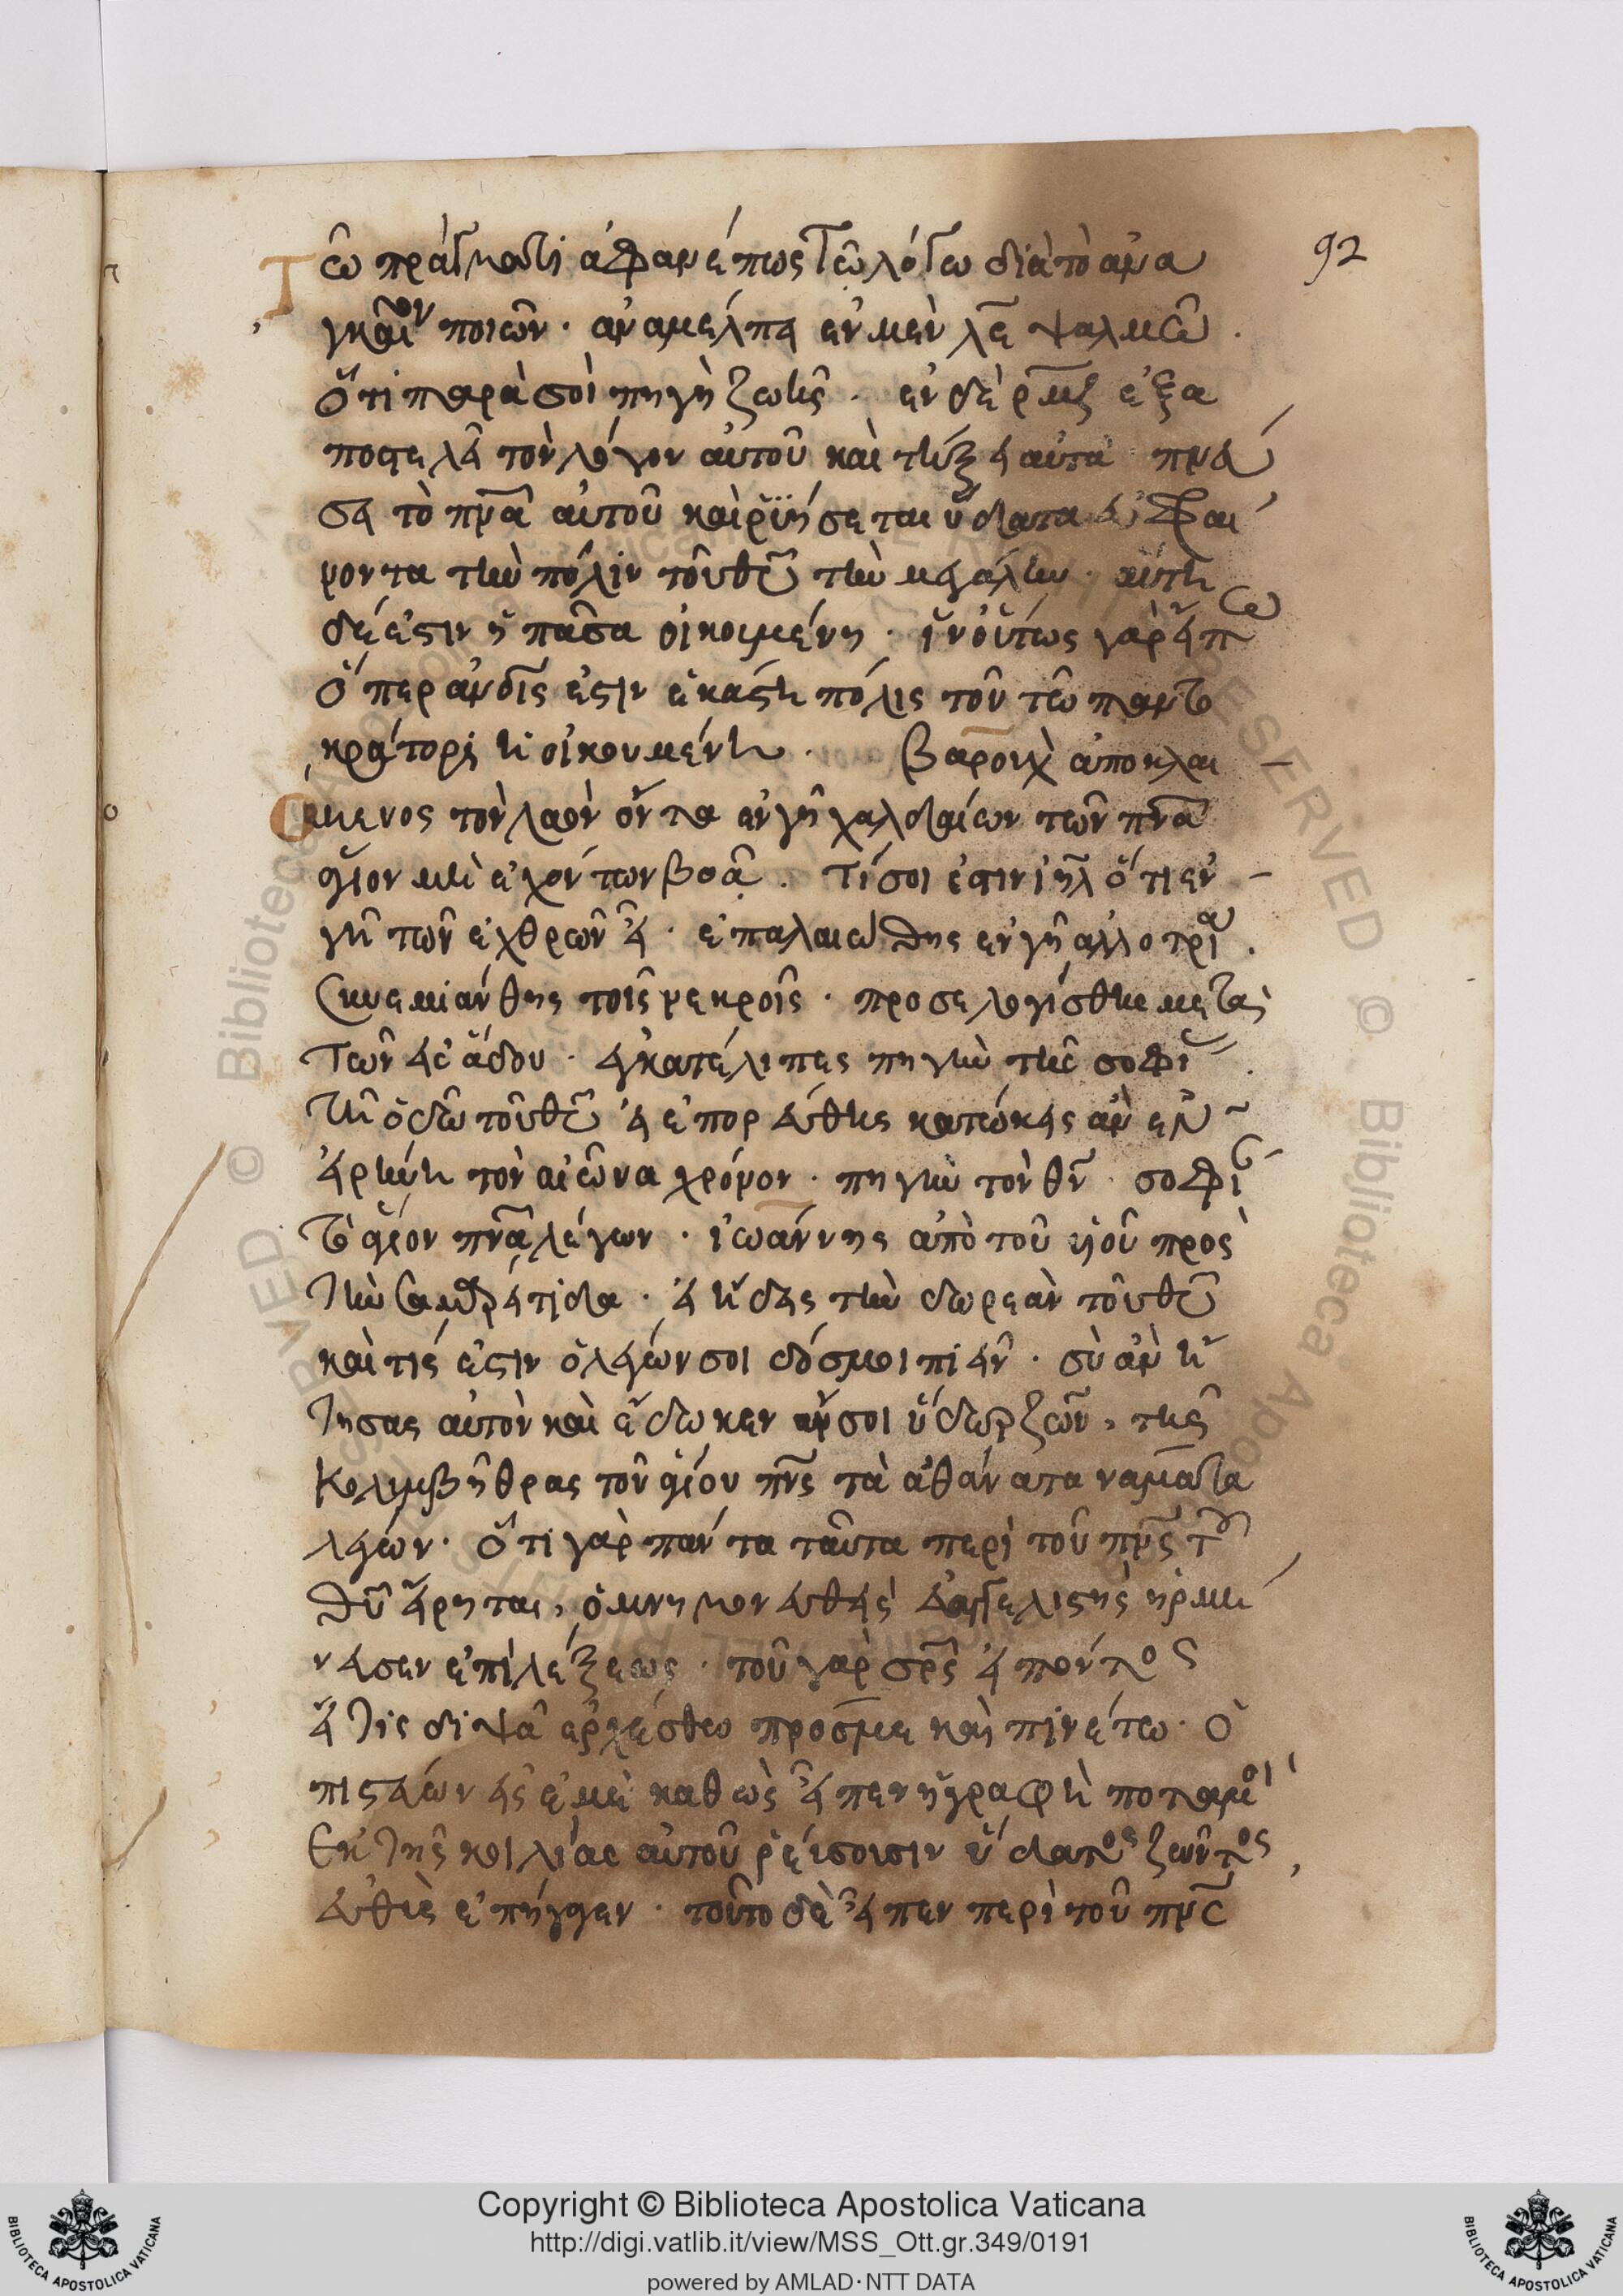 92
Τῶ πράγματι ἀφανέπως τῶ λόγω διὰ τὸ ἀνα
γκαῖον ποιῶν · ἀναμέλπει ἐν μὲν λε ψαλμῶ ·
ὅτι παρὰ σοὶ πηγὴ ζωῆς · ἐν δὲ ρμζ ἐξα
ποστελεῖ τὸν λόγον αὐτοῦ καὶ τήξει αὐτά · πνεύ
σει τὸ πνα αὐτοῦ καὶ ρυήσεται ὕδατα εὐφραί
νοντα τὴν πόλιν τοῦ θυ τὴν μεγάλην · αὕτη
δέ ἐστιν ἡ πᾶσα οἰκουμένη · ἵν οὕτως γὰρ εἴπω
ὅπερ ἀνδῖς ἐστιν ἑκάστη πόλις τοῦ τῶ παντο
κράτορι ἡ οἰκουμένη · Βαροὺχ ἀποκλαι
όμενος τὸν λαὸν ὄντα ἐν γῆ χαλδαίων τῶν πνα
ἅγιον μὴ ἐχόντων βοᾶ · τί σοι ἐστιν ιηλ ὅτι ἐν
γῆ τῶν ἐχθρῶν εἶ · ἐπαλαιώθης ἐν γῆ ἀλλοτρία ·
συνεμιάνθης τοῖς νεκροῖς · προσελογίσθης μετὰ
τῶν εἰς ἅδου · ἐγκατέλιπες πηγὴν τῆς σοφί ·
τῆ ὁδῶ τοῦ θυ εἰ ἐπορεύθης κατώκεις ἂν ἐν
εἰρήνη τὸν αἰῶνα χρόνον · πηγὴν τὸν θν · σοφί
τὸ ἅγιον πνα λέγων · ἰωάννης ἀπὸ τοῦ υἱοῦ πρὸς
τὴν σαμαρείτιδα · εἰ ἤδεις τὴν δωρεὰν τοῦ θυ
καὶ τίς ἐστιν ὁ λέγων σοι δός μοι πιεῖν · σὺ ἂν ἤ
τησας αὐτὸν καὶ ἔδωκεν ἄν σοι ὕδωρ ζῶν, τῆς
κολυμβήθρας τοῦ ἁγίου πνς τὰ ἀθάνατα νάματα
λέγων · ὅτι γὰρ πάντα ταῦτα περὶ τοῦ πνς τοῦ
θυ εἴρηται, ὁ μνημονευθεὶς εὐαγγελιστὴς ἡρμή
νευσεν ἐπὶ λέξεως · τοῦ γὰρ σρς εἰπόντος
εἴ τις διψᾶ ἐρχέσθω πρός με καὶ πινέτω · ὁ
πιστεύων εἰς ἐμὲ καθὼς εἶπεν ἡ γραφὴ ποταμοὶ
ἐκ τῆς κοιλίας αὐτοῦ ῥεύσουσιν ὕδατος ζῶντος,
εὐθὺς ἐπήγαγεν · τοῦτο δὲ εἶπεν περὶ τοῦ πνς
Copyright © Biblioteca Apostolica Vaticana
http://digi.vatlib.it/view/MSS_Ott.gr.349/0191
powered by AMLAD·NTT DATA
BIBLIOTECA APOSTOLICA VATICANA
BIBLIOTECA APOSTOLICA VATICANA